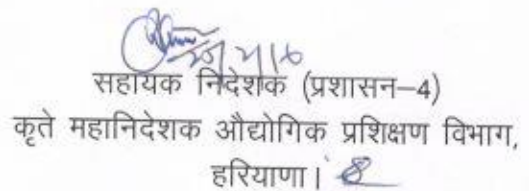 सहायक निदेशक (प्रशासन–4)
कृते महानिदेशक औद्योगिक प्रशिक्षण विभाग,
हरियाणा।